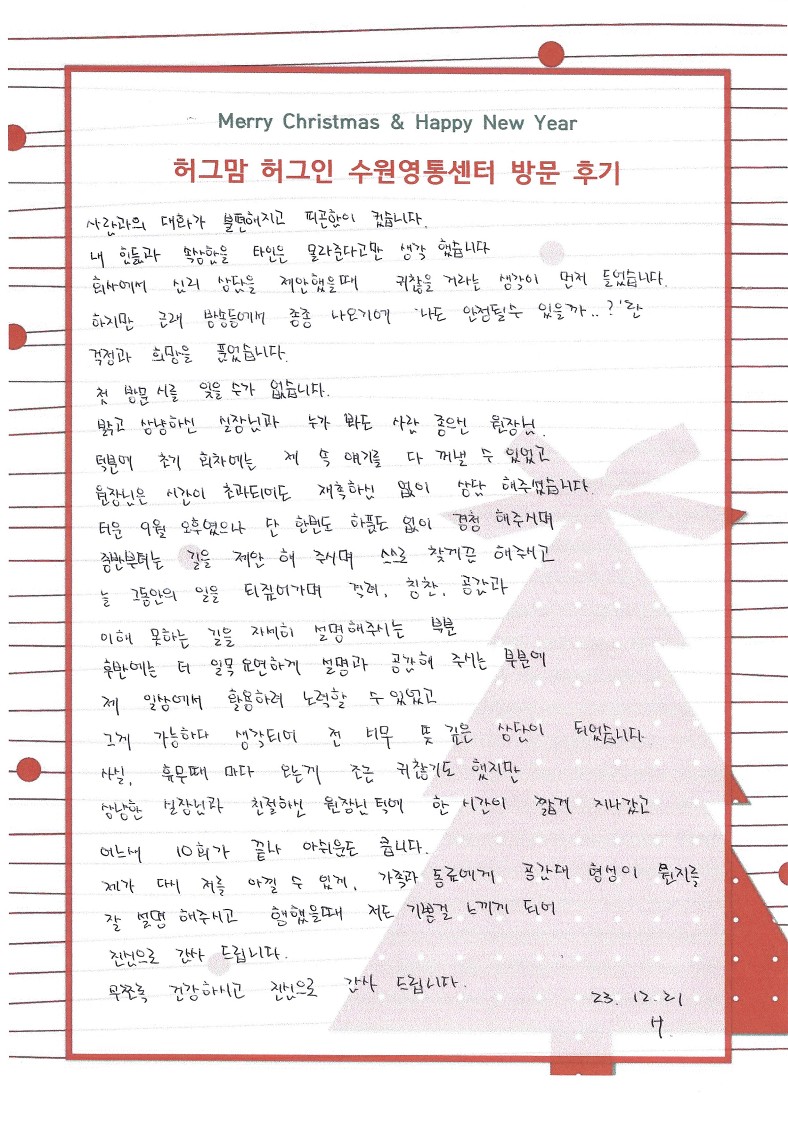 Merry Christmas & Happy New Year
허그맘 허그인 수원영통센터 방문 후기
사람과의 대화가 불편해지고 피곤함이 컸습니다.
내 힘듦과 속상함을 타인은 몰라준다고만 생각 했습니다
회사에서 심리 상담을 제안했을때 귀찮을 거라는 생각이 먼저 들었습니다.
하지만 근래 방송등에서 종종 나오기에 '나도 안정될수 있을까..?'란
걱정과 희망을 품었습니다.
첫 방문 시를 잊을 수가 없습니다.
밝고 상냥하신 실장님과 누가 봐도 사람 좋으신 원장님.
덕분에 초기 회차에는 제 속 얘기를 다 꺼낼 수 있었고
원장님은 시간이 초과되어도 재촉하심 없이 상담 해주셨습니다.
더운 9월 오후였으나 단 한번도 하품도 없이 경청 해주시며
중반부터는 길을 제안 해 주시며 스스로 찾게끔 해주시고
늘 그동안의 일을 되짚어가며 격려, 칭찬, 공감과
이해 못하는 길을 자세히 설명해주시는 부분
후반에는 더 일목요연하게 설명과 공감해 주시는 부분에
제 일상에서 활용하려 노력할 수 있었고
그게 가능하다 생각되어 전 너무 뜻 깊은 상담이 되었습니다.
사실, 휴무때 마다 오는게 조금 귀찮기도 했지만
상냥한 실장님과 친절하신 원장님 덕에 한 시간이 짧게 지나갔고
어느새 10회가 끝나 아쉬운도 큽니다.
제가 다시 저를 아낄 수 있게, 가족과 동료에게 공감대 형성이 뭔지를
잘 설명 해주시고 행했을때 저도 기쁜걸 느끼게 되어
진심으로 감사 드립니다.
무쪼록 건강하시고 진심으로 감사 드립니다.
23. 12. 21
H.